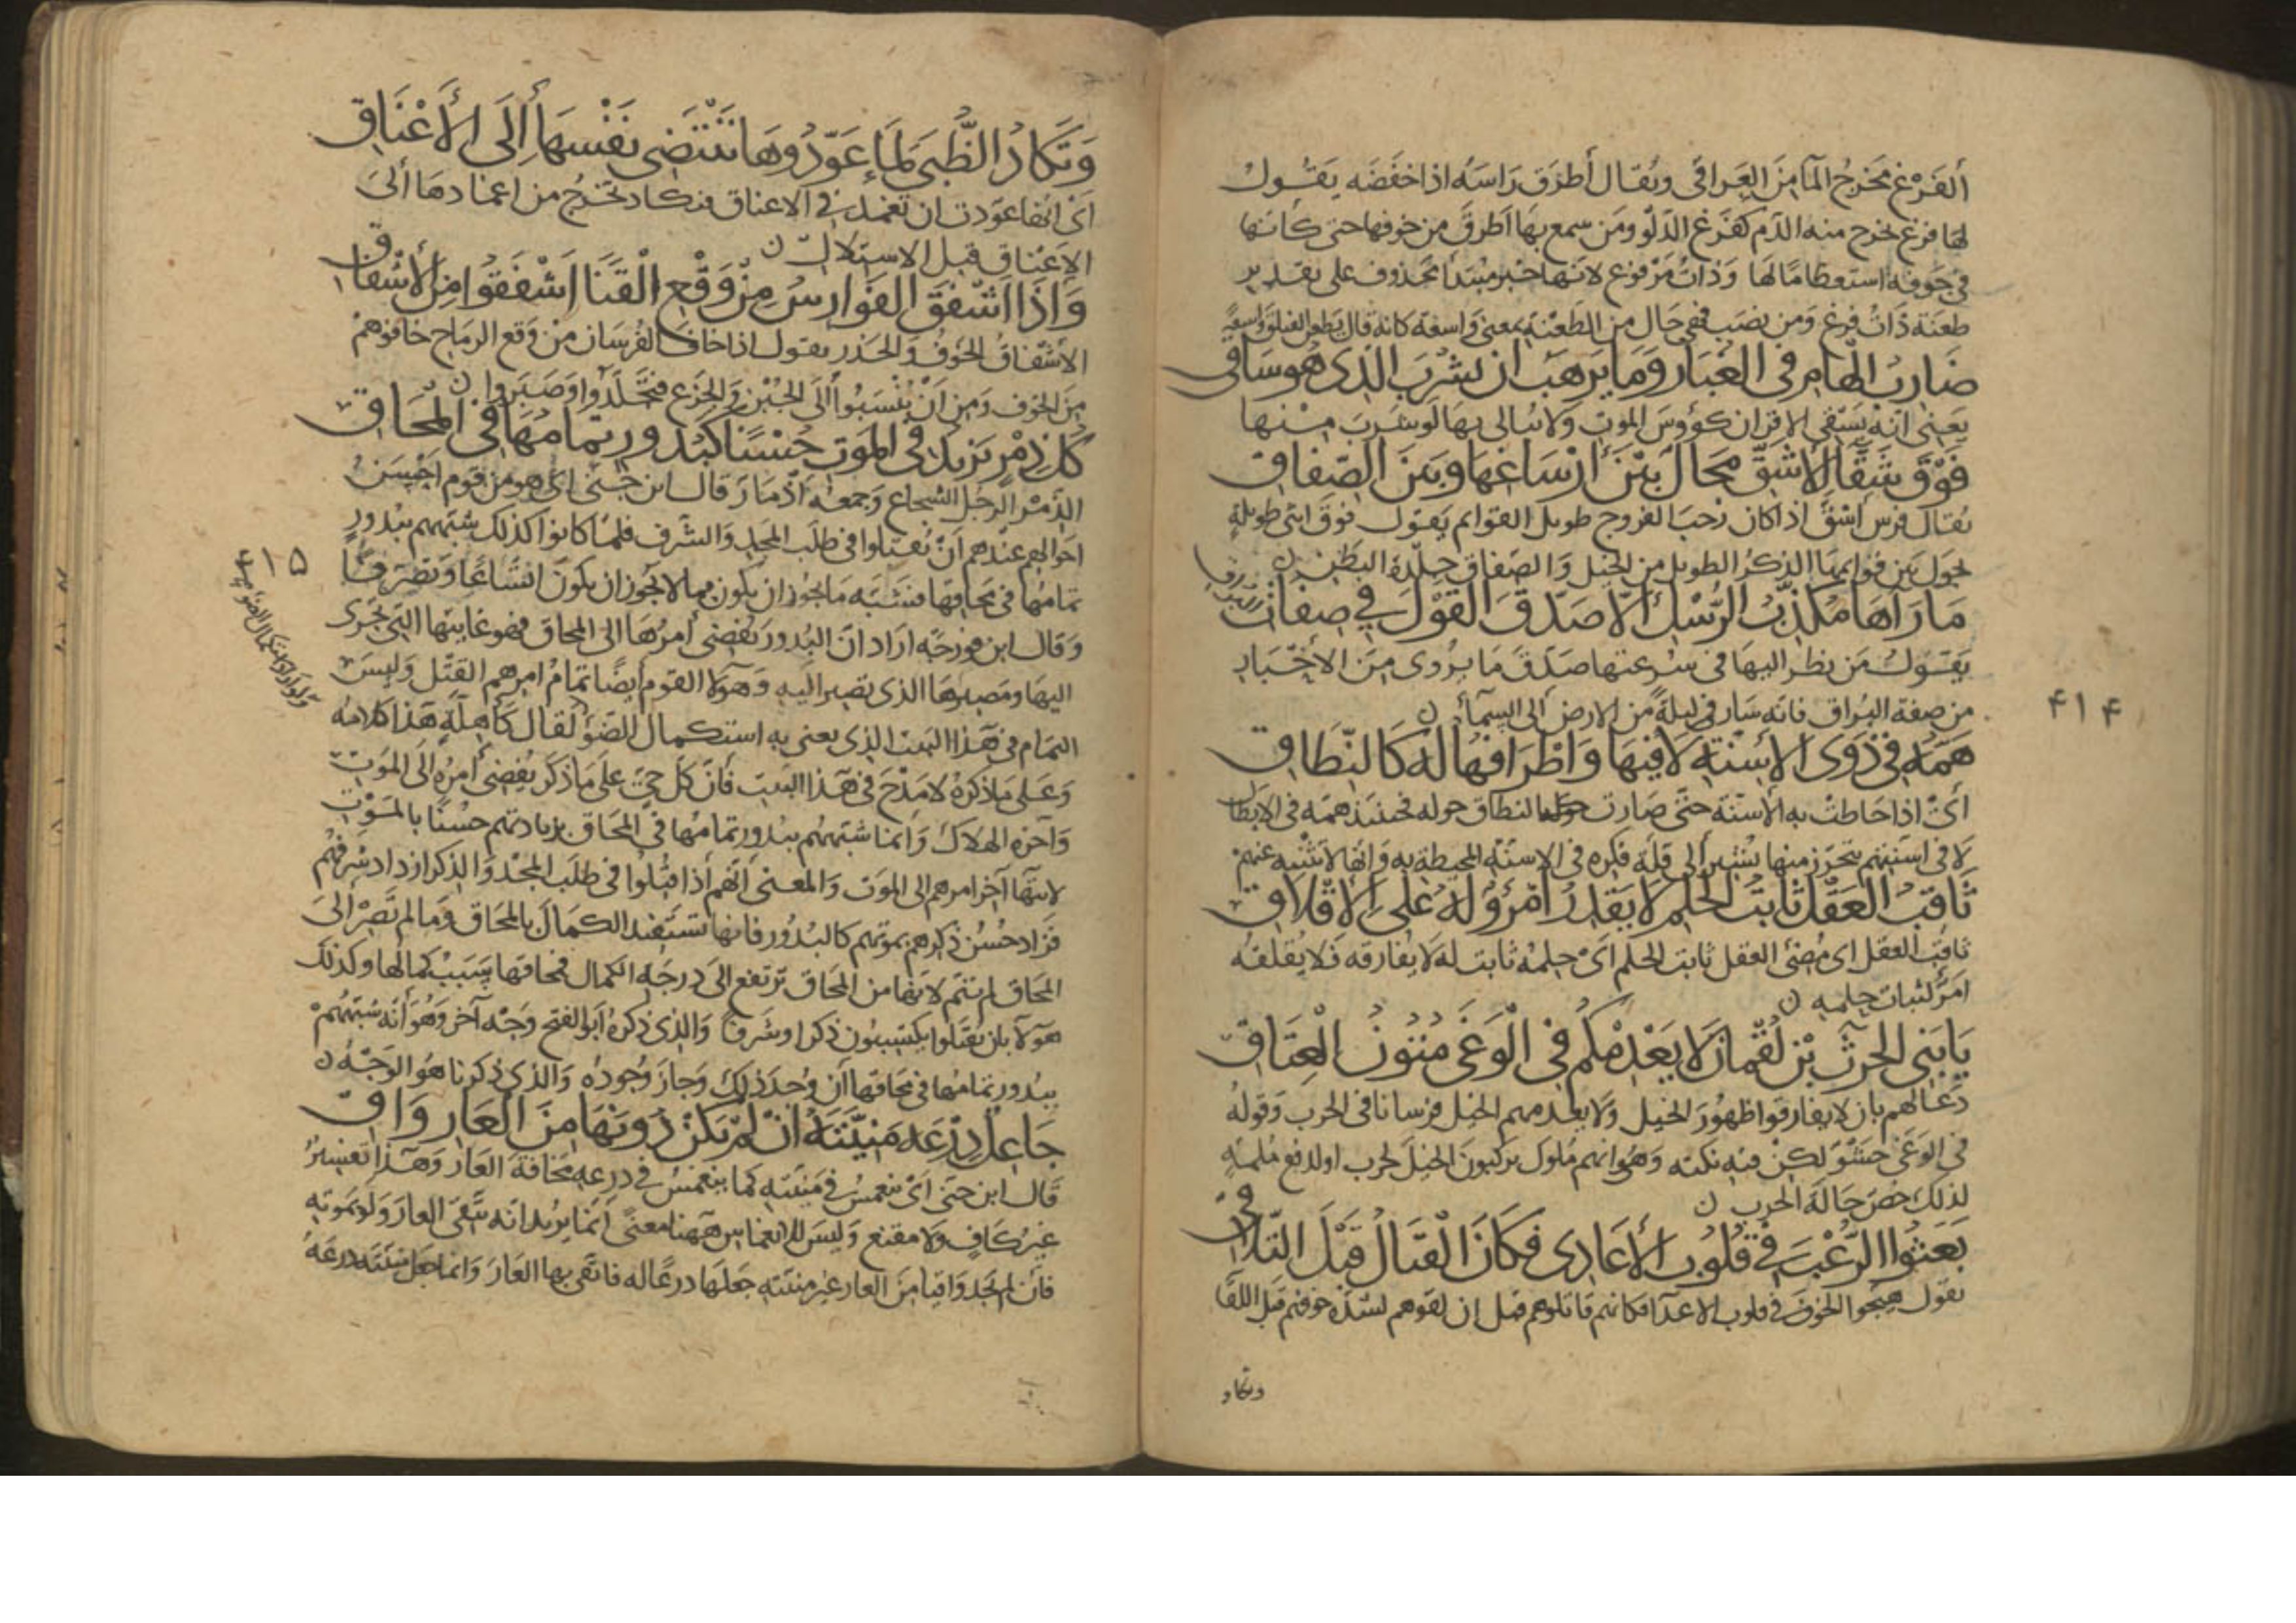 ألفَرْغ مخرج الماء من العراقى ويقال أطرق راسه اذا خفضه يقول
لها فرغ يخرج منه الدم كفرغ الدلو ومن سمع بها اطرق من خوفها حتى كأنها
فى جوفه استعظاما لها وذات مرفوع لانها خبر مبتدأ محذوف على تقدير
طعنة ذات فرغ ومن نصب فهى حال من الطعنة بمعنى واسعة كانه قال يطعن الفيلق واسعة
ضارب الهام فى الغبار وما يرهب ان يشرب الذى هو ساقى
يعنى انه يسقى الاقران كؤوس الموت ولا يبالى بها لو شرب منها
فوق شقاء للأشق مجال بين أرساغها وبين الصفاق
يقال فرس أشق اذا كان رحب الفروج طويل القوائم يقول فوق انثى طويلة
يجول بين قوايمها الذكر الطويل من الخيل والصفاق جلدة البطن
ما رآها مكذب الرسل الا صدق القول فى صفات البراق
يقول من نظر اليها فى سرعتها صدق ما يروى من الاخبار
من صفة البراق فانه سار فى ليلة من الارض الى السماء
۴۱۴
همه فى ذوى الأسنة لا فيها واطرافها له كالنطاق
أى اذا حاطت به الأسنة حتى صارت حوله كالنطاق حوله فحينئذ همه فى الابطال
لا فى اسنتهم يتحرز منها يشير الى قلة فكره فى الاسنة المحيطة به وانها لا تثنيه عنهم
ثاقب العقل ثابت الحلم لا يقدر امرؤ له على الاقلاق
ثاقب العقل اى مضئ العقل ثابت الحلم اى حلمه ثابت له لا يفارقه فلا يقلقه
امر لثبات حلمه
يا بنى الحرث بن لقمان لا يعدمكم فى الوغى متون العتاق
دعا لهم بان لا يفارقوا ظهور الخيل ولا يعدمهم الخيل فرسانا فى الحرب وقوله
فى الوغى حشو لكن فيه نكته وهى انهم ملوك يركبون الخيل لحرب او لدفع ملمة
لذلك خص حالة الحرب
بعثوا الرعب فى قلوب الأعادى فكان القتال قبل التلاقى
يقول هيجوا الخوف فى قلوب الاعدا فكانهم قاتلوهم قبل ان لقوهم لشدة خوفهم قبل اللقا
وتكاد
وتكاد الظبى لما عودوها تنتضى نفسها إلى الأعناق
اى انها عودت ان تغمد فى الاعناق فتكاد تخرج من اغمادها الى
الاعناق قبل الاستلال
واذا اشفق الفوارس من وقع القنا اشفقوا من الأشفاق
الاشفاق الخوف والحذر يقول اذا خاف الفرسان من وقع الرماح خافوا هم
من الخوف ومن ان ينسبوا الى الجبن والجزع فتجلدوا وصبروا
كل ذمر يزيد فى الموت حسنا كبدور تمامها فى المحاق
الذمر الرجل الشجاع وجمعه اذمار قال ابن جنى اى هو من قوم احسن
احوالهم عندهم ان يقتلوا فى طلب المجد والشرف فلما كانوا كذلك شبههم ببدور
تمامها فى محاقها فشبه ما يجوز ان يكون بما لا يجوز ان يكون اتساعا وتصرفا
وقال ابن فورجه اراد ان البدور يفضى أمرها الى المحاق فهو غايتها التى تجرى
اليها ومصيرها الذى تصير اليه وهولا القوم أيضا تمام امرهم القتل وليس
التمام فى هذا البيت الذى يعنى به استكمال الضوء لقال كأهلة هذا كلامه
ولو اراد ذلك كمال الضو
۱۵
وعلى ما ذكره لا مدح فى هذا البيت فان كل حى على ما ذكر يفضى أمره الى الموت
وآخره الهلاك وانما شبههم ببدور تمامها فى المحاق بزيادتهم حسنا بالموت
لانها آخر امرهم الى الموت والمعنى انهم اذا قتلوا فى طلب المجد والذكر ازداد شرفهم
فزاد حسن ذكرهم بموتهم كالبدور فانها تستفيد الكمال بالمحاق وما لم تصر الى
المحاق لم تتم لانها من المحاق ترتفع الى درجة الكمال فمحاقها سبب كمالها وكذلك
هولا بان يقتلوا يكتسبون ذكرا وشرفا والذى ذكره ابو الفتح وجه آخر وهو أنه شبههم
ببدور تمامها فى محاقها ان وجد ذلك وجاز وجوده والذى ذكرنا هو الوجه
جاعل درعه منيته ان لم يكن دونها من العار واق
قال ابن جنى اى ينغمس فى منيته كما ينغمس فى درعه مخافة العار وهذا تفسير
غير كاف ولا مقنع وليس للانغماس ههنا معنى انما يريد انه يتقى العار ولو بموته
فان لم يجد واقيا من العار غير منيته جعلها درعا له فاتقى بها العار وانما جعل منيته درعه